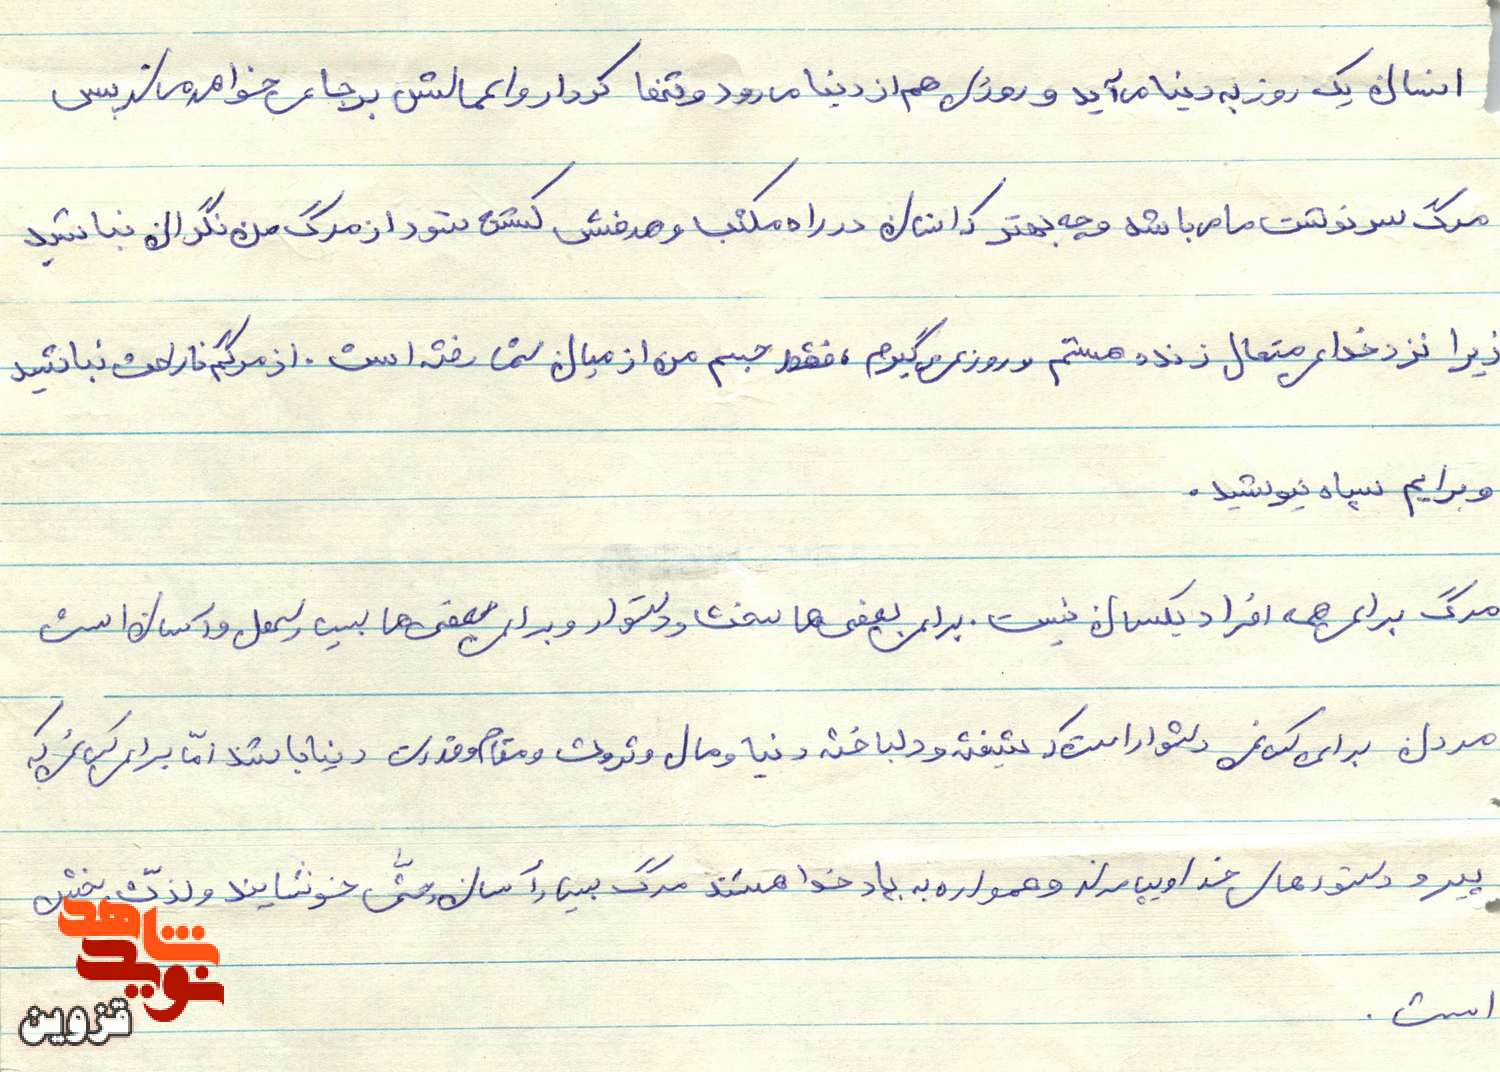 انسان یک روز به دنیا می‌آید و روزی هم از دنیا می‌رود و تنها کردار و اعمالش بر جای خواهد ماند پس
مرگ سرنوشت ما می‌باشد و چه بهتر که انسان در راه مکتب و هدفش کشته شود از مرگ من نگران نباشید
زیرا نزد خدای متعال زنده هستم و روزی می‌گیرم، فقط جسم من از میان شما رفته است. از مرگم ناراحت نباشید
و برایم سیاه نپوشید.
مرگ برای همه افراد یکسان نیست. برای بعضی‌ها سخت و دشوار و برای بعضی‌ها بسیار سهل و آسان است
مردن برای کسانی دشوار است که شیفته و دلباخته دنیا و مال و ثروت و مقام و قدرت دنیا باشند امّا برای کسانی که
پیرو دستورهای خدا و پیامبرند و همواره به یاد خدا هستند مرگ بسیار آسان و حتّی خوشایند و لذّت بخش
است.
شاهد
نوید
قزوین